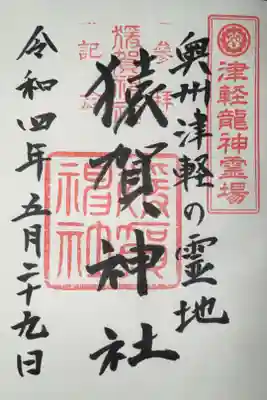 津軽龍神霊場
奥州津軽の霊地
参拝
記念
猿賀神社
猿賀神社
令和四年五月二十九日